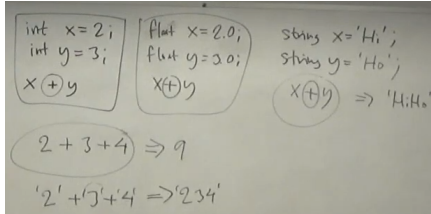 int x=2;
int y=3;
x + y
float x=2.0;
float y=3.0;
x+y
string x='Hi';
string y='Ho';
x+y => 'HiHo'
2+3+4 => 9
'2'+'3'+'4' => '234'